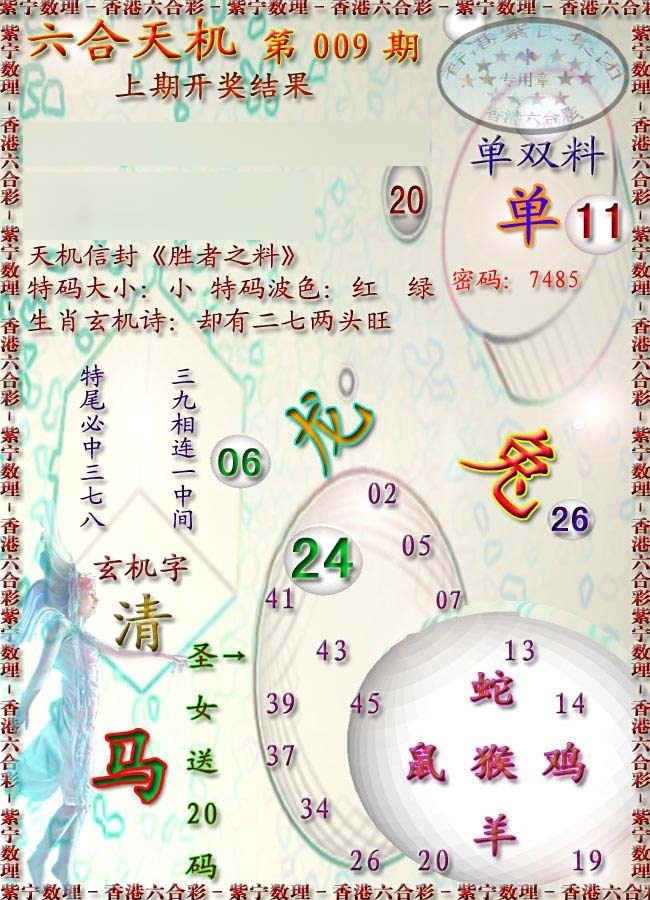 紫宁数理－香港六合彩－紫宁数理－香港六合彩－紫宁数理－香港六合彩－紫宁数理
六合天机 第 009 期
上期开奖结果
专用章
香港六合彩
单双料
单 11
20
天机信封《胜者之料》
特码大小：小 特码波色：红 绿
密码：7485
生肖玄机诗：却有二七两头旺
三九相连一中间
特尾必中三七八
06
龙
兔
26
02
05
24
41
07
玄机字
清
43
13
39
45
蛇
14
马
圣→女送20码
37
鼠 猴 鸡
34
羊
26
20
19
紫宁数理－香港六合彩－紫宁数理－香港六合彩－紫宁数理－香港六合彩－紫宁数理